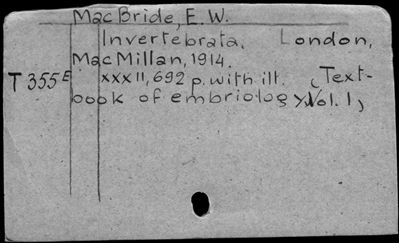 MacBride, E. W.
Invertebrata. London,
MacMillan, 1914.
T 355E xxxII, 692 p. with ilt. (Text-
book of embriology, Vol. 1)